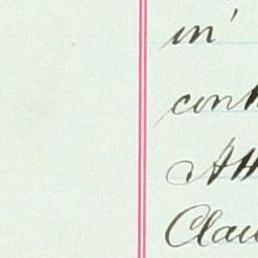 in'
cont
Att
Clau